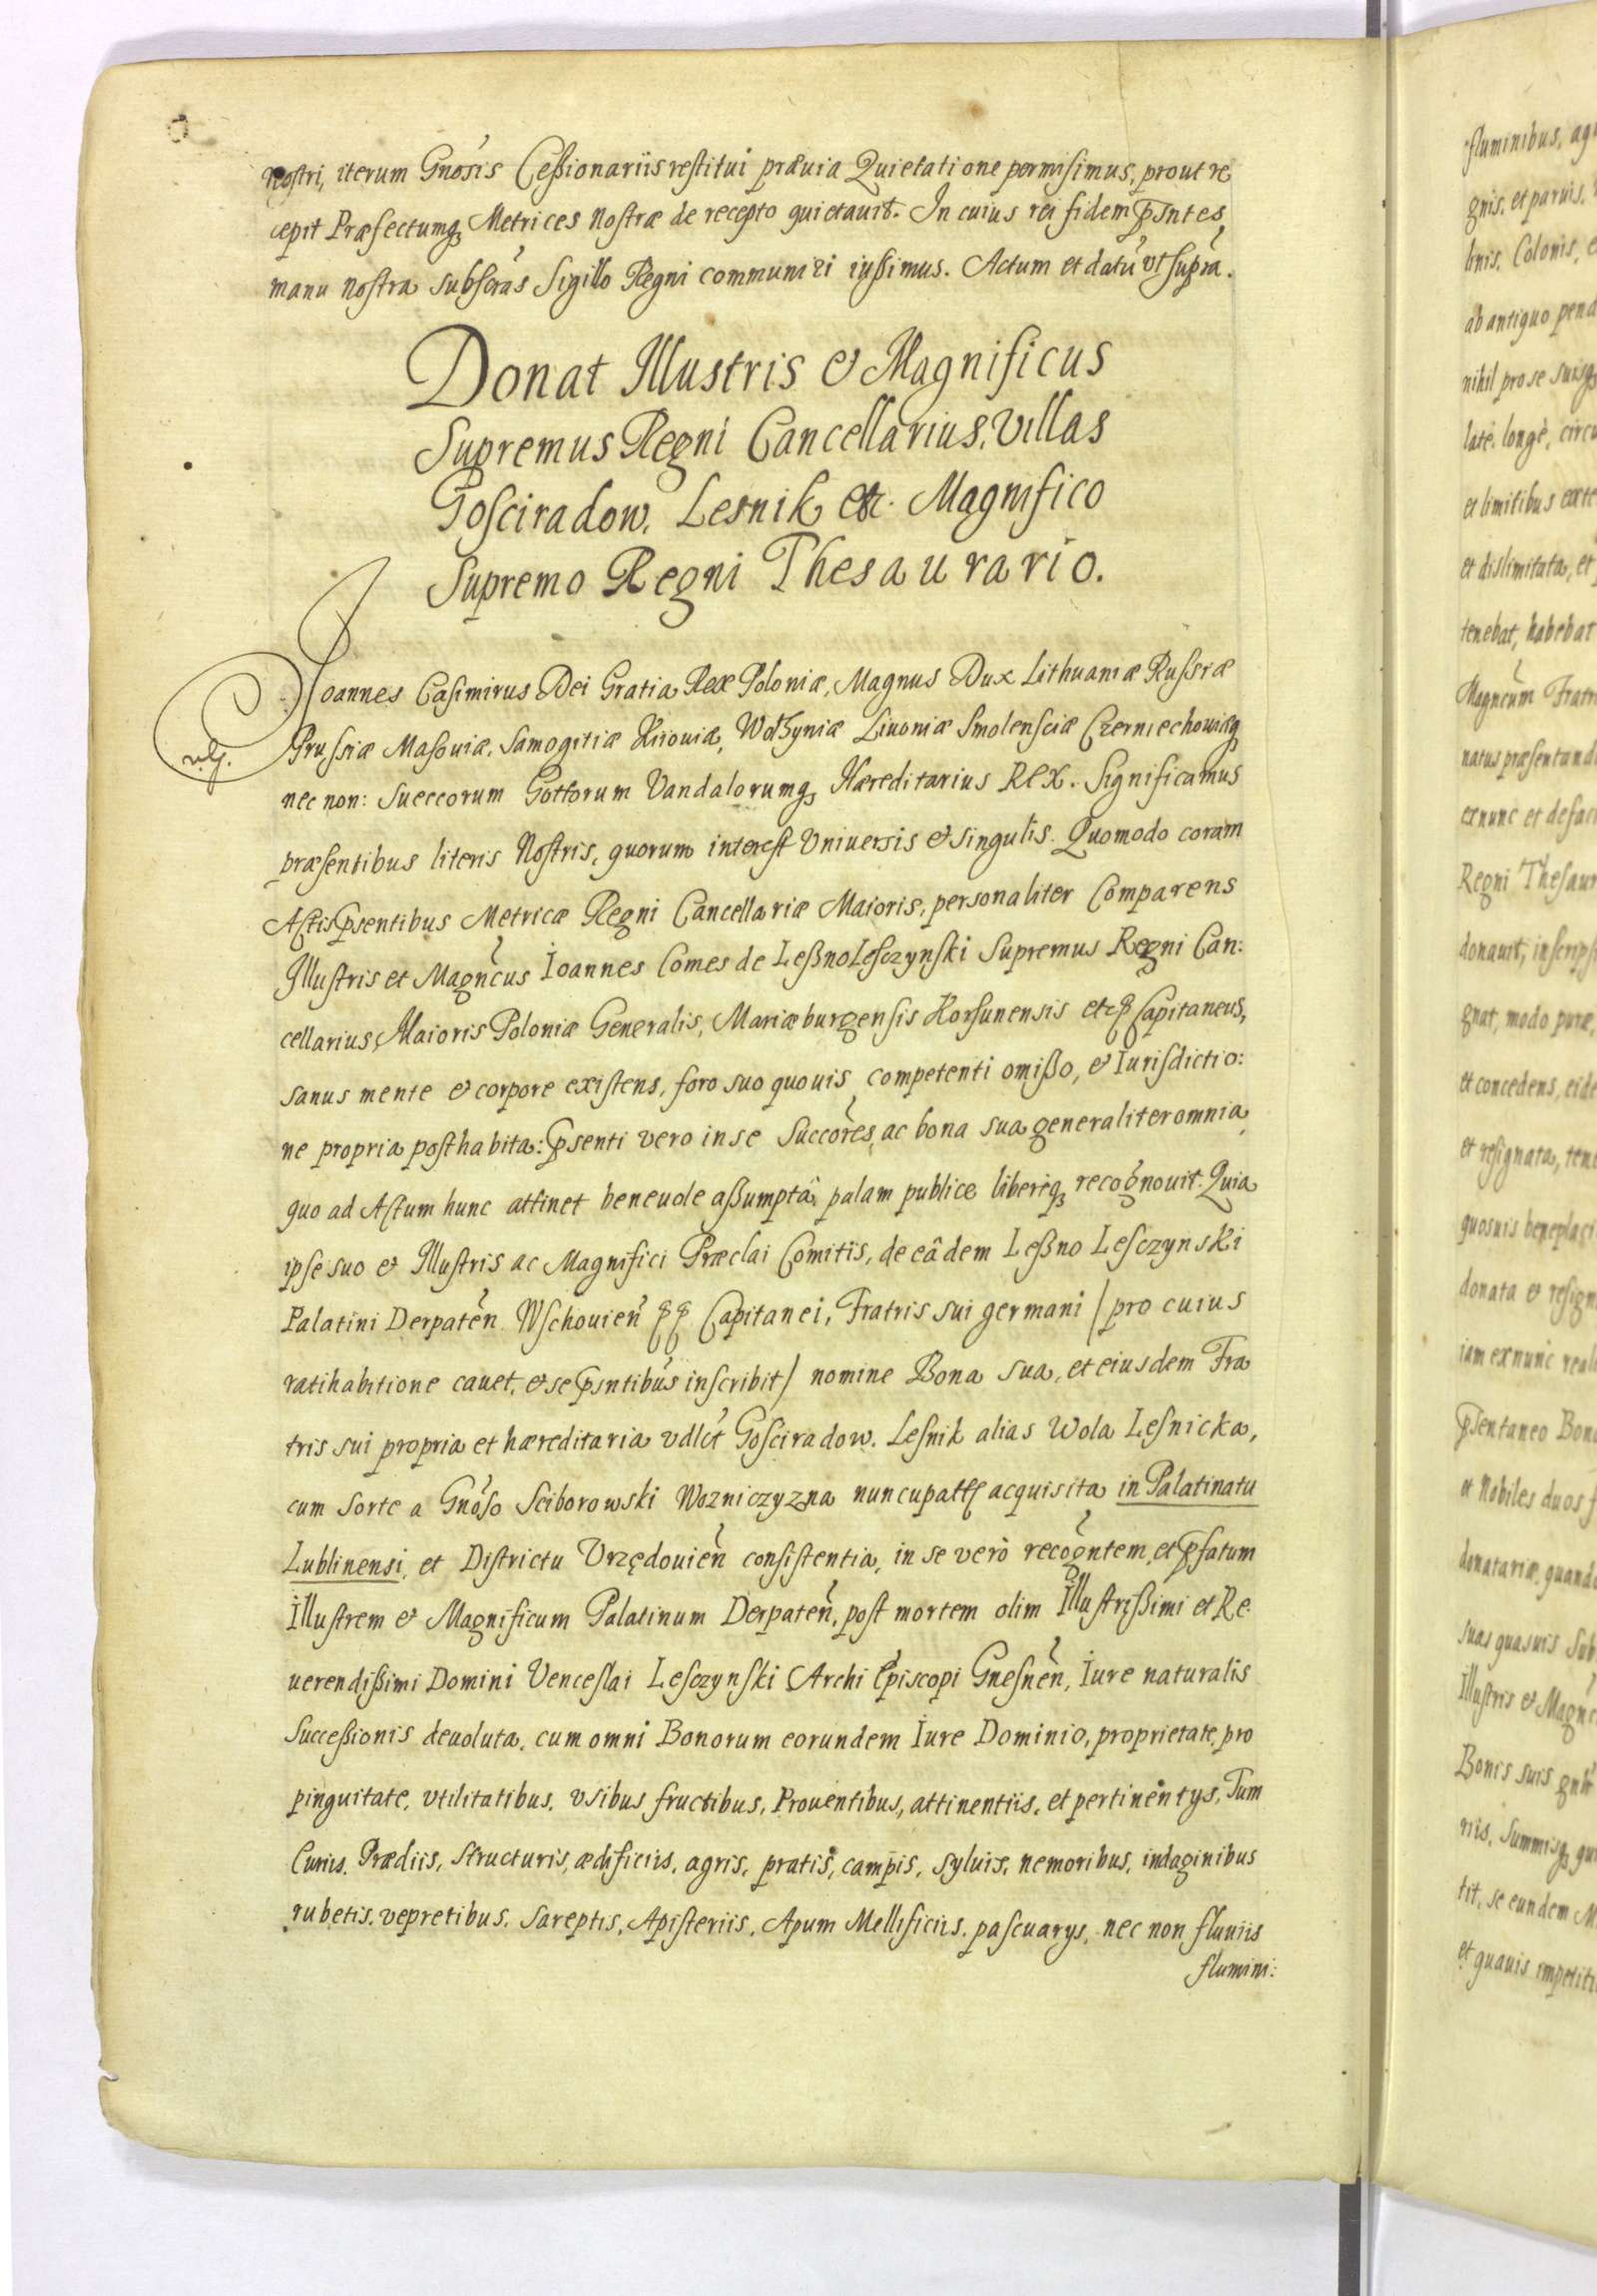 nostri, iterum Gnosis Cessionariis restitui præuia Quietatione permisimus, prout re
cepit Præfectumq Metrices nostræ de recepto quietauit. In cuius rei fidem psntes,
manu nostra subscras Sigillo Regni communiri iussimus. Actum et datu vt supra.
Donat Illustris & Magnificus
Supremus Regni Cancellarius, Villas
Gosciradow, Lesnik etc. Magnifico
Supremo Regni Thesaurario.
Joannes Casimirus Dei Gratia Rex Poloniæ, Magnus Dux Lithuaniæ Russiæ
Prussiæ Masouiæ, Samogitiæ Kiiouiæ, Wolhyniæ Liuoniæ Smolensciæ Czerniechouiæq
nec non: Sueccorum Gottorum Vandalorumq Hæreditarius Rex. Significamus
præsentibus literis Nostris, quorum interest Vniuersis & singulis. Quomodo coram
Actis psentibus Metricæ Regni Cancellariæ Maioris, personaliter Comparens
Illustris et Magncus Ioannes Comes de Leßno Lesczynski Supremus Regni Can:
cellarius, Maioris Poloniæ Generalis, Mariæburgensis Korsunensis etc Capitaneus,
sanus mente & corpore existens, foro suo quouis competenti omißo, & Iurisdictio:
ne propria posthabita: psenti vero in se Succores, ac bona sua generaliter omnia,
quo ad Actum hunc attinet beneuole aßumpta, palam publice libereq recognouit. Quia
ipse suo & Illustris ac Magnifici Præclai Comitis, de eâdem Leßno Lesczynski
Palatini Derpaten Wschouien Capitanei, Fratris sui germani / pro cuius
ratihabitione cauet, & se psntibus inscribit / nomine Bona sua, et eiusdem Fra
tris sui propria et hæreditaria vdlct Gosciradow. Lesnik alias Wola Lesnicka,
cum sorte a Gnoso Sciborowski Wozniczyzna nuncupatt acquisita in Palatinatu
Lublinensi, et Districtu Vrzędouien consistentia, in se verò recogntem, et pfatum
Illustrem & Magnificum Palatinum Derpaten, post mortem olim Illustrißimi et Re
uerendißimi Domini Venceslai Lesczynski Archi Episcopi Gnesnen, Iure naturalis
Succeßionis deuoluta, cum omni Bonorum eorundem Iure Dominio, proprietate, pro
pinquitate, vtilitatibus, vsibus fructibus, Prouentibus, attinentiis, et pertinentys, Tum
Curiis, Prædiis, structuris, ædificiis, agris, pratis, campis, syluis, nemoribus, indaginibus
rubetis, vepretibus, sareptis, Apisteriis, Apum Mellificiis, pascuarys, nec non fluuiis
flumini:
fluminibus,
gnis, et paruis,
Colonis,
ab antiquo
nihil pro se suisq
latè, longè,
et limitibus
et dislimitata, et
tenebat, habebat
Magncum
ex nunc et
Regni
donauit,
gnat, modo puræ,
et concedens,
et resignata,
donata &
iam ex nunc
psentaneo
et Nobiles duos
donatariæ,
suas quasuis
Illustris &
Bonis suis
se eundem
et quauis